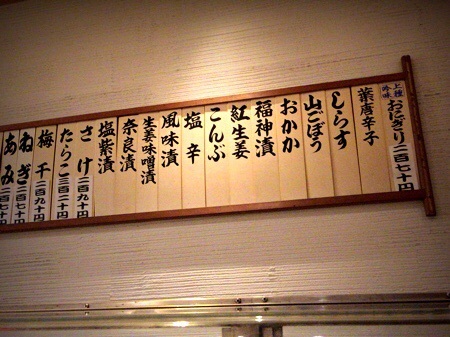 上種吟味 おにぎり二百七十円
葉唐辛子
しらす
山ごぼう
おかか
福神漬
紅生姜
こんぶ
塩辛
風味漬
生姜味噌漬
奈良漬
塩紫漬
さけ二百九十円
たらこ三百二十円
梅干二百九十円
ねぎ二百七十円
あみ二百七十円